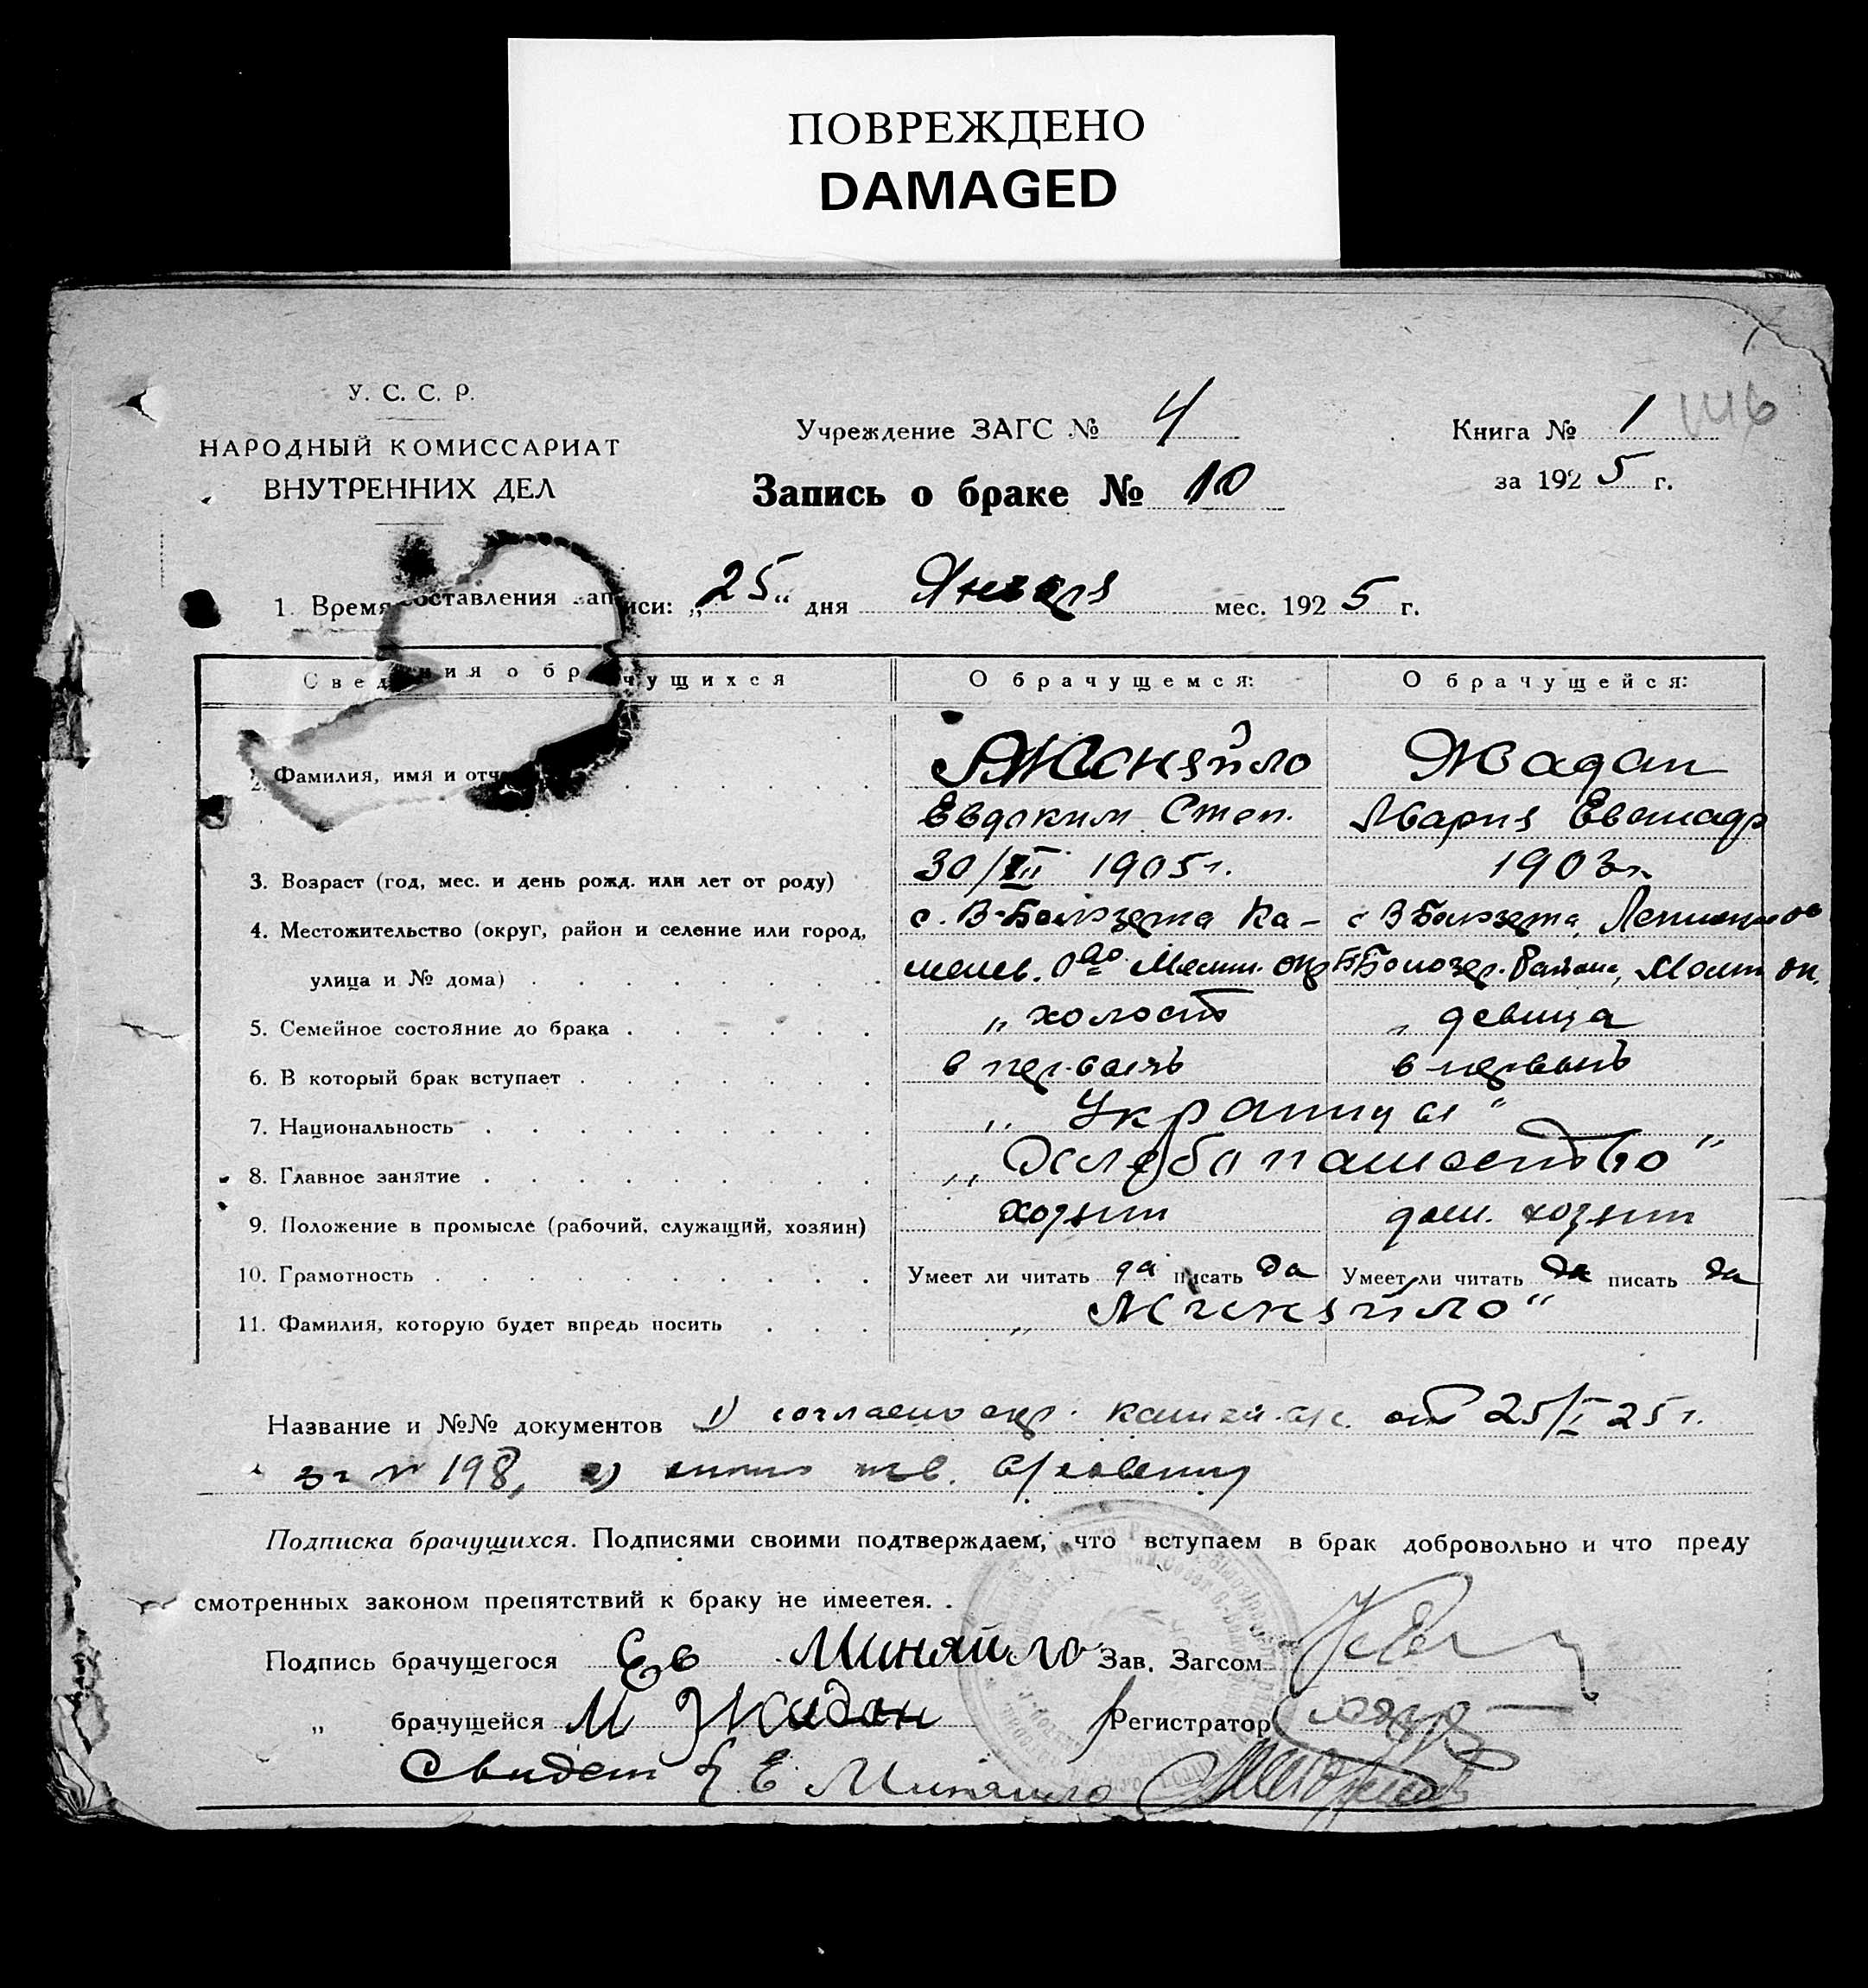 ПОВРЕЖДЕНО
DAMAGED
У. С. С. Р.
НАРОДНЫЙ КОМИССАРИАТ
ВНУТРЕННИХ ДЕЛ
Учреждение ЗАГС № 4
Запись о браке № 10
Книга № 1
за 1925 г.
1. Время составления записи: „25“ дня Января мес. 1925 г.
Сведения о брачущихся
О брачущемся:
О брачущейся:
2. Фамилия, имя и отч
Миняйло
Жадан
Евдоким Степ.
Мария
3. Возраст (год, мес. и день рожд. или лет от роду)
30/VII 1905 г.
1903 г.
4. Местожительство (округ, район и селение или город,
с. В-Белозерка Ка-
с. В Белозерка,
улица и № дома)
Мелит. окр
Белозер. Района, Мелит ок.
5. Семейное состояние до брака
„ холост
„ девица
6. В который брак вступает
в первый
в первый
7. Национальность
„ Украинцы “
8. Главное занятие
„ Хлебопашество “
9. Положение в промысле (рабочий, служащий, хозяин)
хозяин
дом. хозяин
10. Грамотность
Умеет ли читать да писать да
Умеет ли читать да писать да
11. Фамилия, которую будет впредь носить
„ Миняйло “
Название и №№ документов 1) от 25/I 25 г.
за № 198, 2)
Подписка брачущихся. Подписями своими подтверждаем, что вступаем в брак добровольно и что преду
смотренных законом препятствий к браку не имеетея.
Подпись брачущегося Ев Миняйло Зав. Загсом
„ брачущейся М Жадан Регистратор
Свидет Е Миняйло